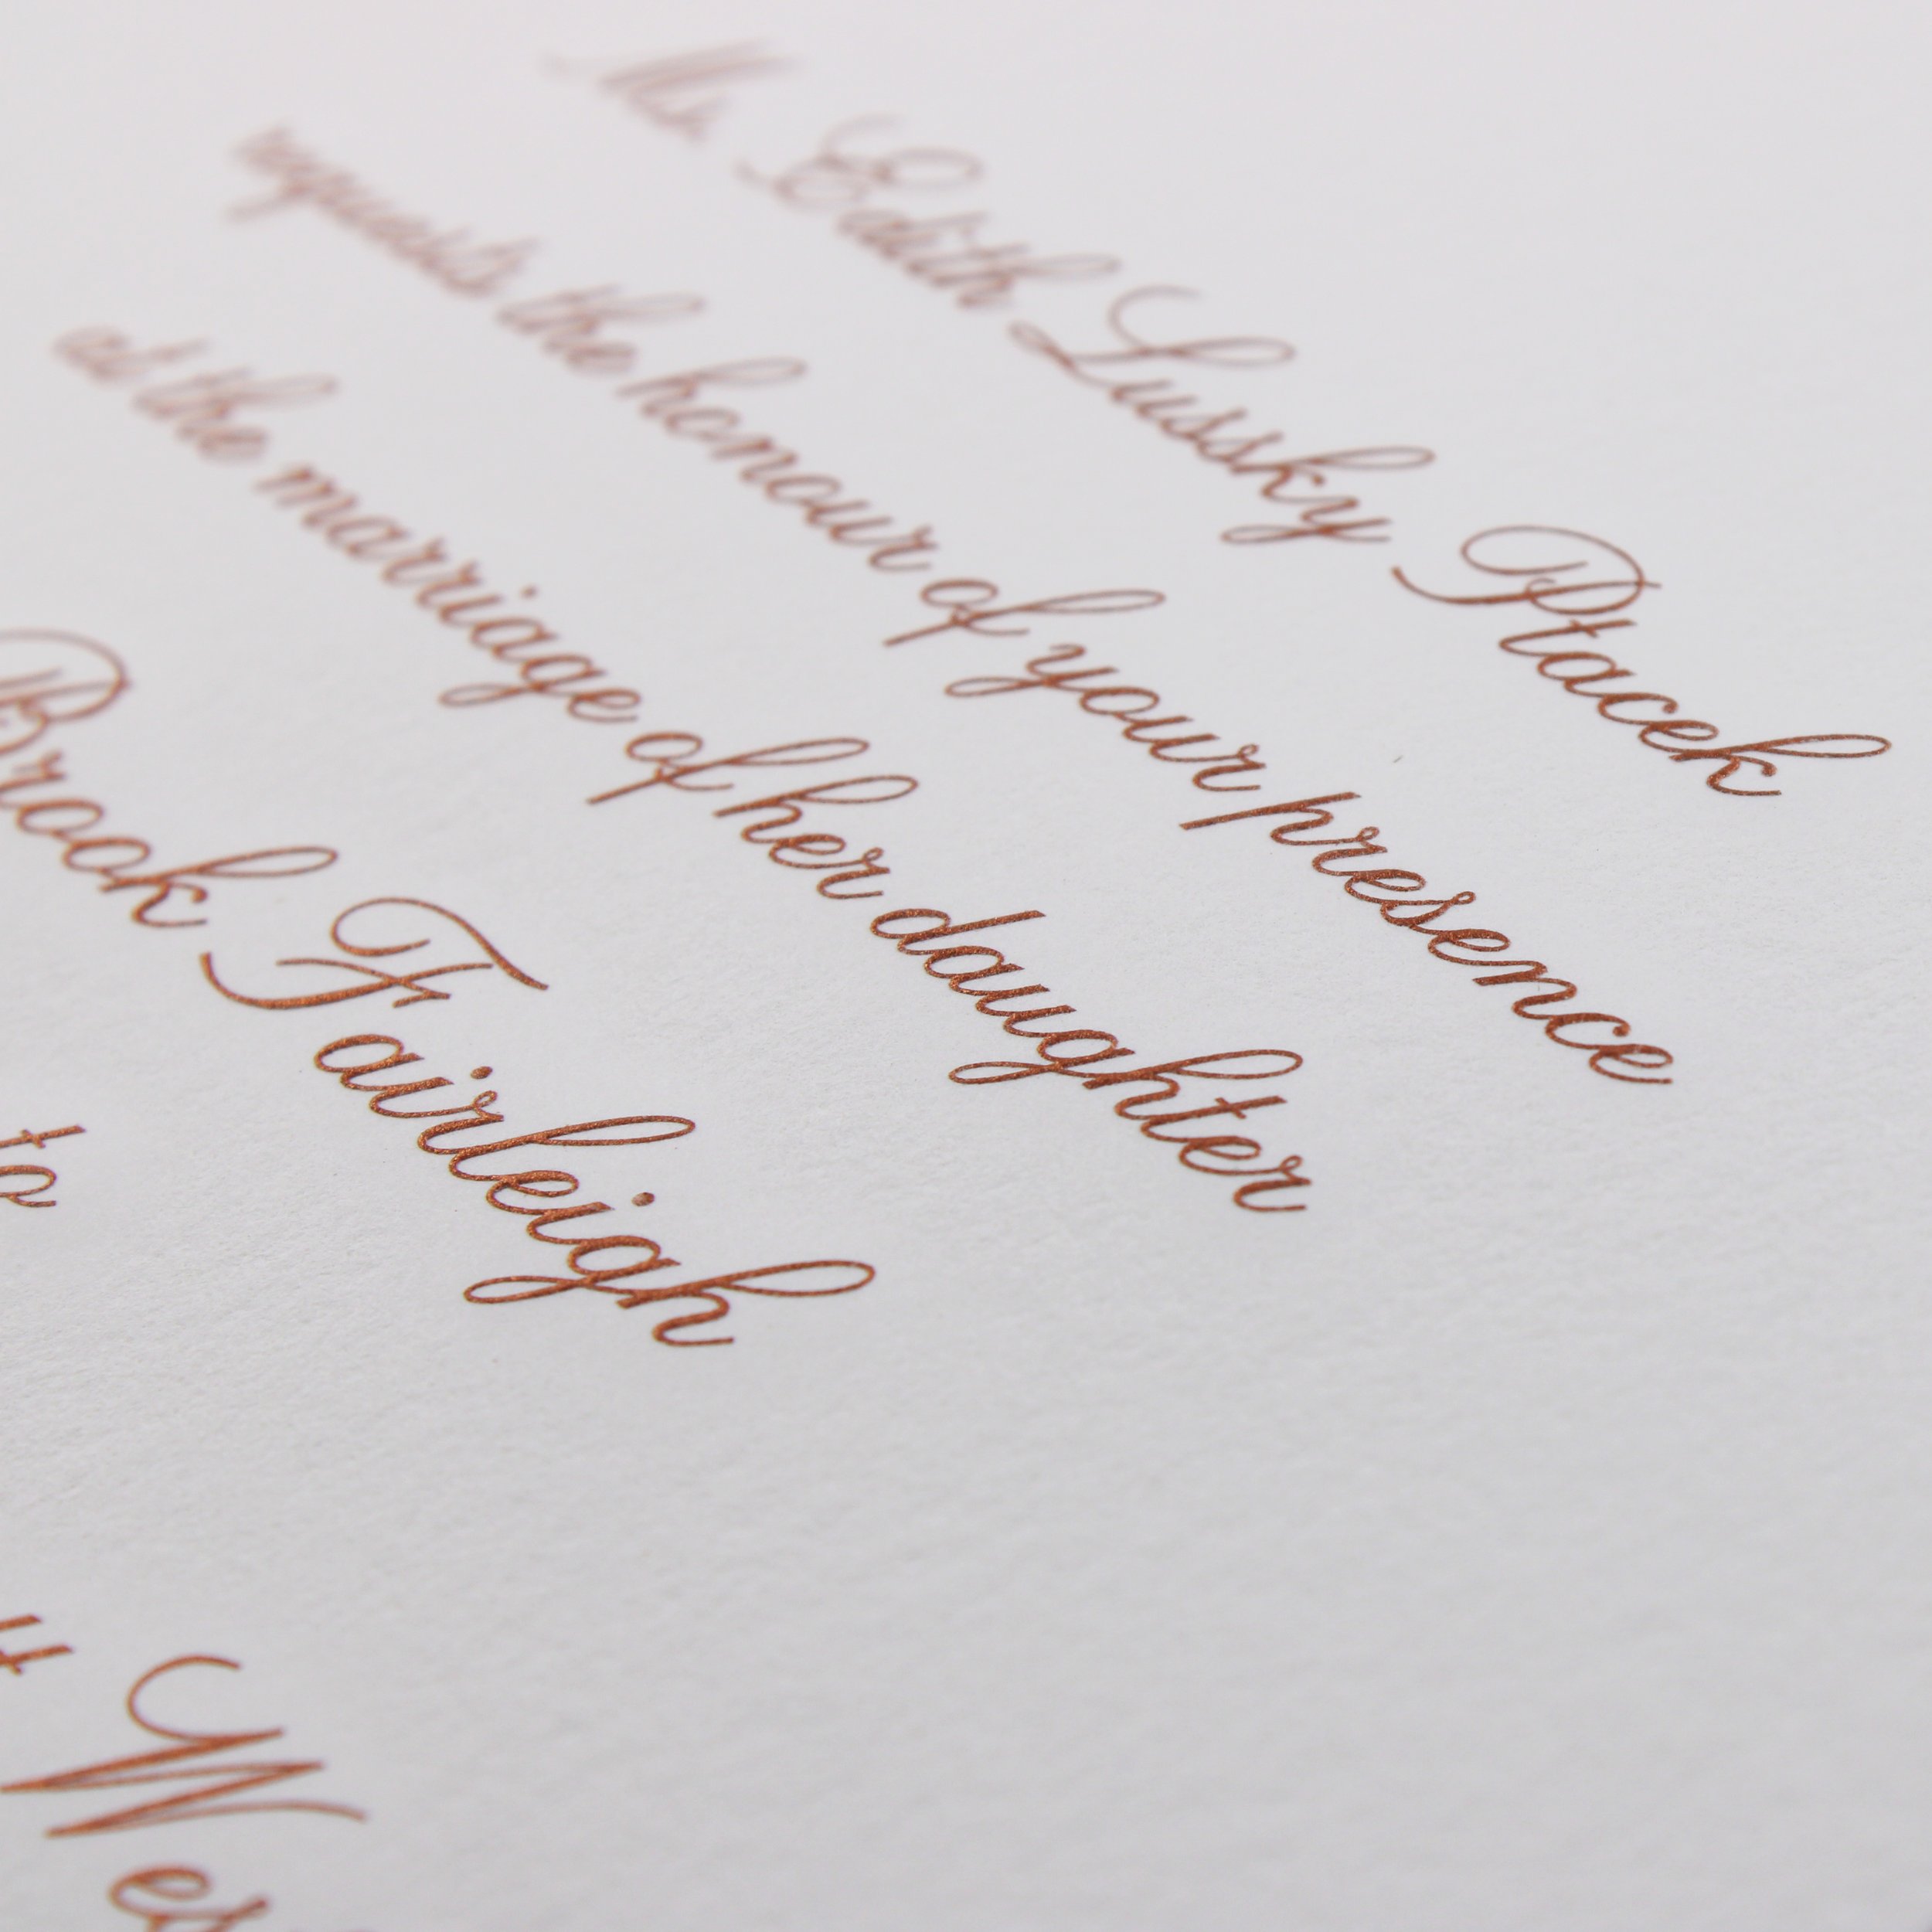 Ms. Edith Lussky Ptacek
requests the honour of your presence
at the marriage of her daughter
Brook Fairleigh
to